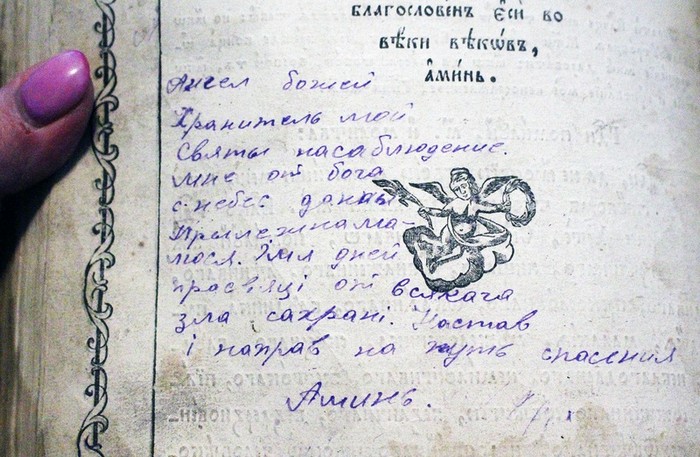 БЛАГОСЛОВЕНЪ Є҆СИ ВО
ВѢКИ ВѢКОВЪ,
А҆МИНЬ.
Ангел божей
Хранитель мой
Святы насаблюдение.
мне от бога
с небес даный
Прилежнамa-
люся.
дней
прасвяці от всякача
зла сахрані. Настав
і направ на путь спасения
Аминь.